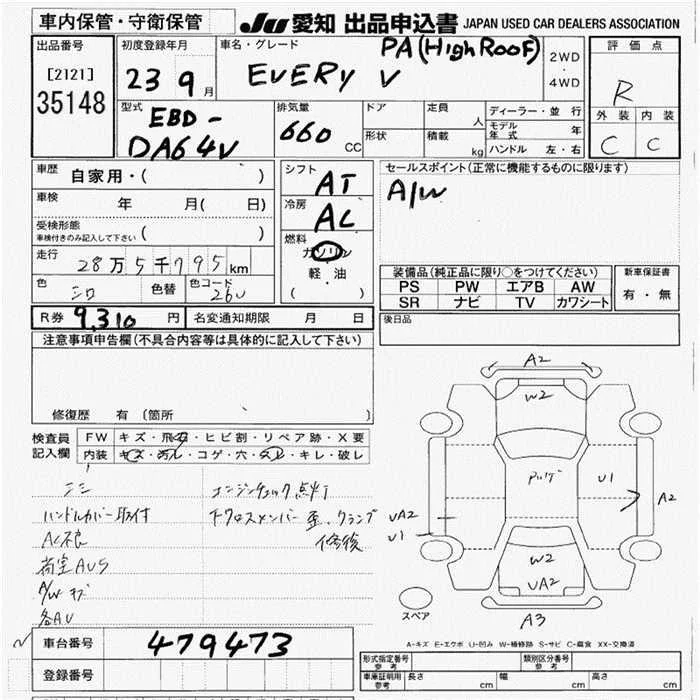 車内保管・守衛保管
JU 愛知 出品申込書 JAPAN USED CAR DEALERS ASSOCIATION
出品番号
[2121]
35148
初度登録年月
23 9 月
車名・グレード
PA (High Roof)
EVERY V
2WD
・
4WD
評価点
R
外装 内装
C C
型式
EBD-
DA64V
排気量
660 CC
ドア
定員
人
形状
積載
kg
ディーラー・並行
モデル年式 年
ハンドル 左・右
車歴
自家用・( )
車検
年 月( 日)
受検形態
車検付きのみ記入して下さい ( )
走行
28万5千795 km
色
色替
色コード
26U
シフト
AT
冷房
AC
燃料
ガソリン
軽・油
( )
セールスポイント(正常に機能するものに限ります)
A/W
装備品(純正品に限り○をつけてください)
PS PW エアB AW
SR ナビ TV カワシート
新車保証書
有・無
R券 9,310 円
名変通知期限 月 日
後日品
注意事項申告欄(不具合内容等は具体的に記入して下さい)
修復歴 有〔箇所 〕
検査員
記入欄
FW キズ・飛石・ヒビ割・リペア跡・X要
内装 キズ・汚レ・コゲ・穴・スレ・キレ・破レ
エンジンチェック点灯
ハンドルカバー取付
下クロスメンバー歪、クランプ
修復
AC不良
荷室AU5
A/Wキズ
各AU
A2
W2
U1
A2
UA2
U1
W2
UA2
A3
スペア
A-キズ E-エクボ U-凹み W-補修跡 S-サビ C-腐食 XX-交換済
車台番号 479473
登録番号
形式指定番号
参考
類別区分番号
参考
車庫証明用
参考
長さ cm
幅 cm
高さ cm